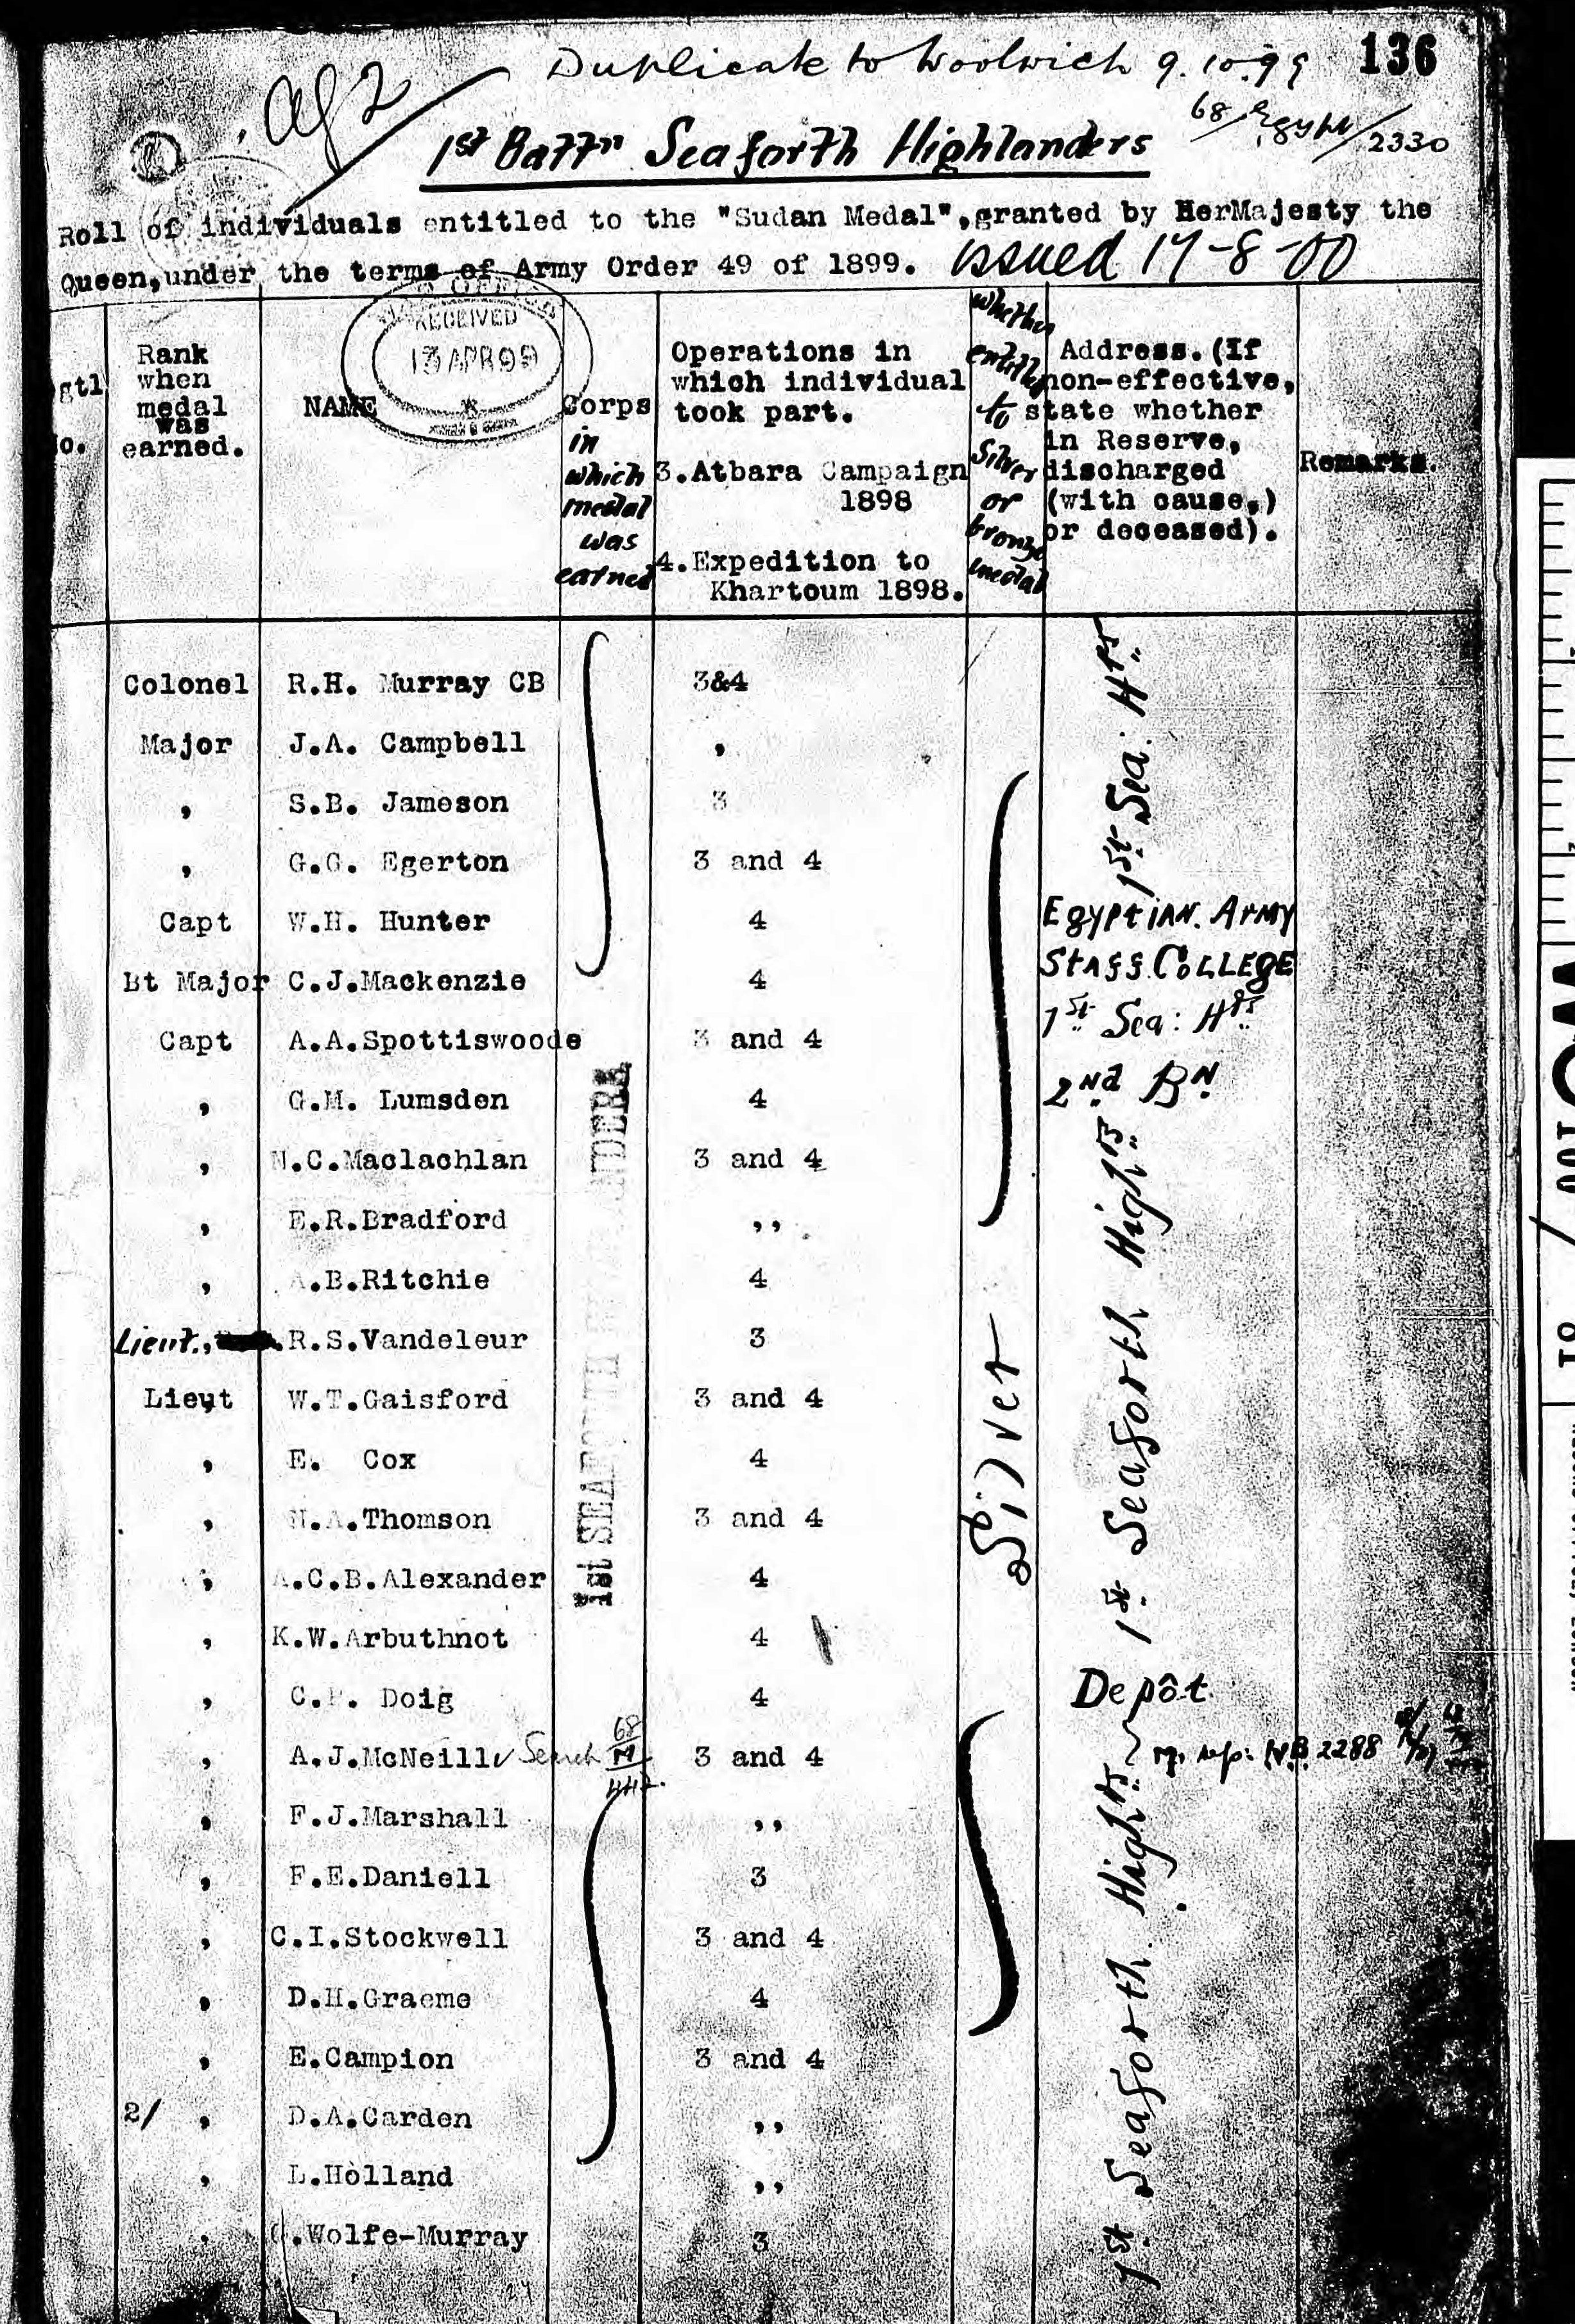 136
Duplicate to Woolwich 9.10.99
68/Egypt/2330
1st Battn Seaforth Highlanders
Roll of individuals entitled to the "Sudan Medal",granted by HerMajesty the
Queen,under the terms of Army Order 49 of 1899. issued 17-8-00
RECEIVED
13 APR 99
gtl
o.
Rank
when
medal
was
earned.
NAME
Corps
in
which
medal
was
earned
Operations in
which individual
took part.
3.Atbara Campaign
1898
4.Expedition to
Khartoum 1898.
whether
entitled
to
Silver
or
bronze
medal
Address.(If
non-effective,
state whether
in Reserve,
discharged
(with cause,)
or deceased).
Remarks.
Colonel R.H. Murray CB 3&4
Major J.A. Campbell ,
, S.B. Jameson 3
, G.G. Egerton 3 and 4
Capt W.H. Hunter 4 Egyptian. Army
Bt Major C.J.Mackenzie 4 Staff College
Capt A.A.Spottiswoode 3 and 4 1st Sea: Hrs
, G.M. Lumsden 4 2nd Bn
, N.C.Maclachlan 3 and 4
, E.R.Bradford ,,
, A.B.Ritchie 4
Lieut., R.S.Vandeleur 3
Lieut W.T.Gaisford 3 and 4
, E. Cox 4
, N.A.Thomson 3 and 4
, A.C.B.Alexander 4
, K.W.Arbuthnot 4
, C.P. Doig 4 Depôt
, A.J.McNeill Search 68/M/ 3 and 4 NB 2288
, F.J.Marshall ,,
, F.E.Daniell 3
, C.I.Stockwell 3 and 4
, D.H.Graeme 4
, E.Campion 3 and 4
2/ , D.A.Carden ,,
, L.Holland ,,
, .Wolfe-Murray 3
1st SEAFORTH HIGHLANDERS
Silver
1st Sea: Hrs
1st Seaforth Highrs
1st Seaforth Highrs